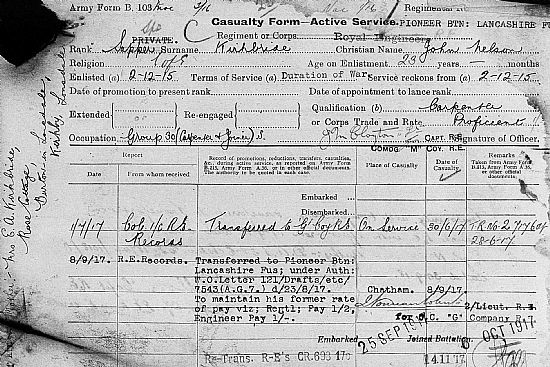 Army Form B. 103
Casualty Form—Active Service.
PIONEER BTN: LANCASHIRE F
Regiment or Corps Royal Engineers
PRIVATE.
Rank Sapper Surname Kirkbride Christian Name John Nelson
Religion C of E Age on Enlistment 23 years — months
Enlisted (a) 2-12-15 Terms of Service (a) Duration of War Service reckons from (a) 2-12-15.
Date of promotion to present rank Date of appointment to lance rank
Extended Re-engaged Qualification (b) Carpenter
or Corps Trade and Rate Proficient
Occupation Group 30 (Carpenter & Joiner) S. CAPT. R.E. Signature of Officer.
COMDG. "M" COY. R.E.
Mrs E. A. Kirkbride,
Rose Cottage,
Burton in Lonsdale,
Kirkby Lonsdale
Report
Date
From whom received
Record of promotions, reductions, transfers, casualties, &c., during active service, as reported on Army Form B.213, Army Form A.36, or in other official documents. The authority to be quoted in each case.
Place of Casualty
Date of Casualty
Remarks
Taken from Army Form B.213, Army Form A.36, or other official documents.
Embarked
Disembarked
1/7/17 Col. i/c R.E. Records Transferred to G Coy R.E. On Service 30/6/17
28-6-17
8/9/17. R.E.Records. Transferred to Pioneer Btn:
Lancashire Fus; under Auth:
W.O.Letter 121/Drafts/etc/
7543(A.G.7.) d/23/8/17. Chatham. 8/9/17.
To maintain his former rate
of pay viz; Rgntl; Pay 1/2,
Engineer Pay 1/-. 2/Lieut. R.E.
for O.C. "G" Company R.
Embarked 25 SEP 1917 Joined Battalion OCT 1917
Re-Trans. R-E's CR.693 17c 14.11.17